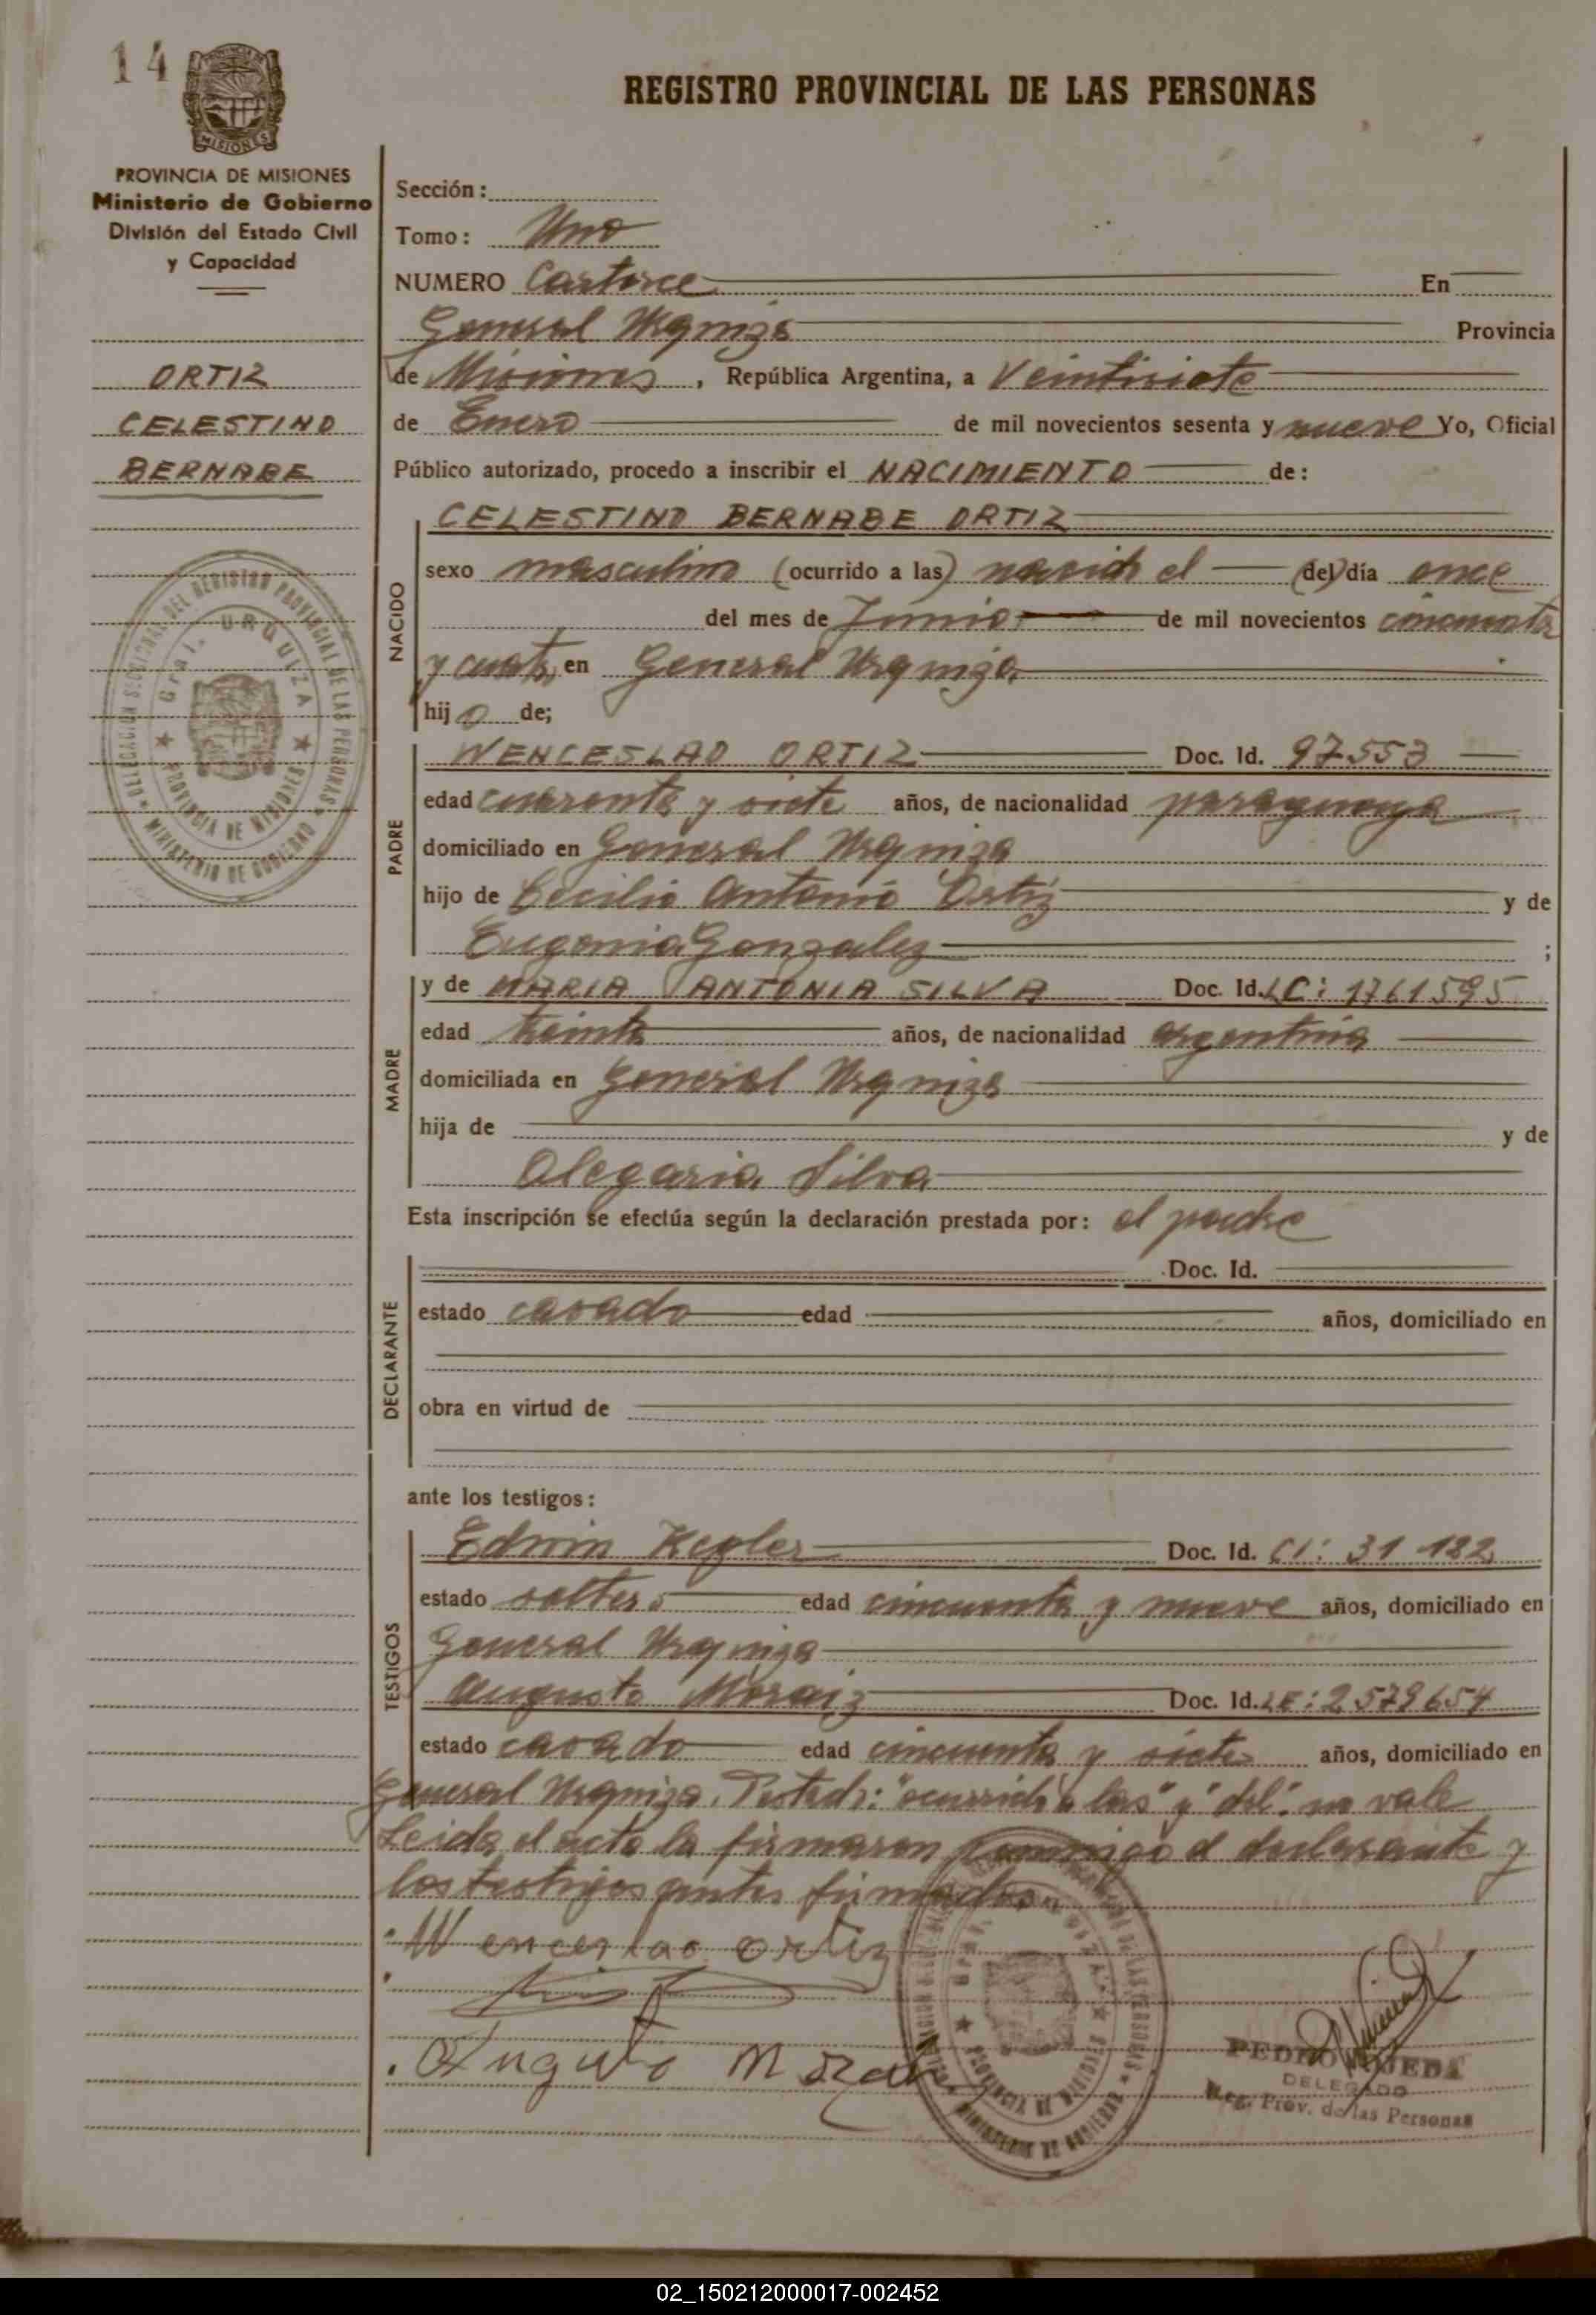 14
MISIONES
PROVINCIA DE MISIONES
Ministerio de Gobierno
División del Estado Civil
y Capacidad
ORTIZ
CELESTINO
BERNABE
DELEGACION SECCIONAL DEL REGISTRO PROVINCIAL DE LAS PERSONAS
MINISTERIO DE GOBIERNO
Gral. URQUIZA
PROVINCIA DE MISIONES
REGISTRO PROVINCIAL DE LAS PERSONAS
Sección:
Tomo: Uno
NUMERO Cartorce En
General Urquiza Provincia
de Misiones, República Argentina, a Veintisiete
de Enero de mil novecientos sesenta y nueve Yo, Oficial
Público autorizado, procedo a inscribir el NACIMIENTO de:
NACIDO
CELESTINO BERNABE ORTIZ
sexo masculino (ocurrido a las) nacido el (del) día once
del mes de Junio de mil novecientos cincuenta
y cuatro, en General Urquiza
hijo de;
PADRE
WENCESLAO ORTIZ Doc. Id. 97553
edad cuarenta y siete años, de nacionalidad paraguaya
domiciliado en General Urquiza
hijo de Cecilio Antonio Ortiz y de
Eugenia Gonzalez ;
MADRE
y de MARIA ANTONIA SILVA Doc. Id. LC: 1761595
edad treinta años, de nacionalidad argentina
domiciliada en General Urquiza
hija de y de
Olegaria Silva
Esta inscripción se efectúa según la declaración prestada por: el padre
DECLARANTE
Doc. Id.
estado casado edad años, domiciliado en
obra en virtud de
ante los testigos:
TESTIGOS
Edwin Kegler Doc. Id. CI: 31 182
estado soltero edad cincuenta y nueve años, domiciliado en
General Urquiza
Augusto Moraiz Doc. Id. LE: 2579654
estado casado edad cincuenta y siete años, domiciliado en
General Urquiza. Testado: "ocurrido a las" y "del". no vale
Leida el acta la firmaron conmigo el declarante y
los testigos antes firmados
Wenceslao ortiz
Augusto
PEDRO OJEDA
DELEGADO
Reg. Prov. de las Personas
02_150212000017-002452